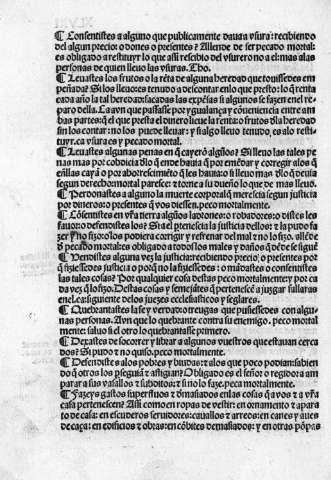 ¶ Consentistes a alguno que publicamente daua a vsura: recibiendo
del algun precio: o dones o presentes? Allende de ser pecado mortal:
es obligado a restituyr lo que assi rescibio del vsurero no a el: mas a las
personas de quien lleuo las vsuras. Tho.
¶ Leuastes los frutos o la rēta de alguna heredad que touissedes em
peñada? Si los lleuo: es tenudo a descontar enlo que presto: lo q̄ renta
cada año la tal heredad: sacadas las expēsas si algunos se fazen enel re
paro della. Ca avn que passasse por ygualança y conueniencia entre am
bas partes: q̄ el que presta el dinero lieue la renta: o frutos dla heredad
sin los contar: no los puede lleuar: y si algo lleuo tenudo es a lo resti
tuyr. ca vsura es y pecado mortal.
¶ Leuastes algunas penas en q̄ cayerō algūos? Si lleuo las tales pe
nas mas por cobdicia dlo q̄ ende hauia q̄ por emēdar y corregir alos q̄
enllas cayā o por aborrescimiēto q̄ les hauia: o si lleuo mas dlo q̄ deuia
segun derecho: mortal paresce: z torne a su dueño lo que de mas lleuo.
¶ Perdonastes a alguno la muerte corporal q̄ merescia segun justicia
por dineros: o presentes q̄ vos diessen. peco mortalmente.
¶ Cōsentistes en vr̄a tierra algūos ladrones: o robadores: o distes les
fauor: o defendistes los? Si a el ptenescia la justicia dellos: z la pudo fa
zer y no fizo: o los podiera corrigir y refrenar del mal z no lo fizo. allēde
d pecado mortal: es obligado a todos los males y daños q̄ dēde se siguē
¶ Vendistes alguna vez la justicia: recibiendo precio: o presentes por
q̄ fiziessedes justicia: o por q̄ no la fiziessedes: o mādastes o consentistes
las tales cosas? Por qualquier cosa destas peco mortalmente: y por ca
da vez q̄ lo fizo. Destas cosas y semejātes q̄ pertenescē a juzgar fallaras
en le. ca. siguiente delos juezes ecclesiasticos y seglares.
¶ Quebrantastes la fe y verdad: o treuguas que pusiessedes con algu
nas personas. Avn que lo quebrante contra su enemigo. peco mortal
mente: saluo si el otro lo quebrantasse primero.
¶ Dexastes de socorrer y librar a algunos vuestros que estauan cerca
dos? Si pudo z no quiso. peco mortalmente.
¶ Defendiste a los pobres y biudas: z alos que poco podian: sabien
do q̄ otros los psseguiā z astigian? Obligado es el señor o regidor: a am
parar a sus vasallos z subditos: z si no lo faze. peca mortalmente.
¶ Fazeys gastos superfluos z dmasiados enlas cosas q̄ a vos z a vr̄a
casa pertenescen? Assi como en ropas de vestir: en ornamento z apara
to de casa: en escuderos seruidores: cauallos z arreos: en canes y aues
de caça: en edificios z obras: en cōbites demasiados: y en otras pōpas